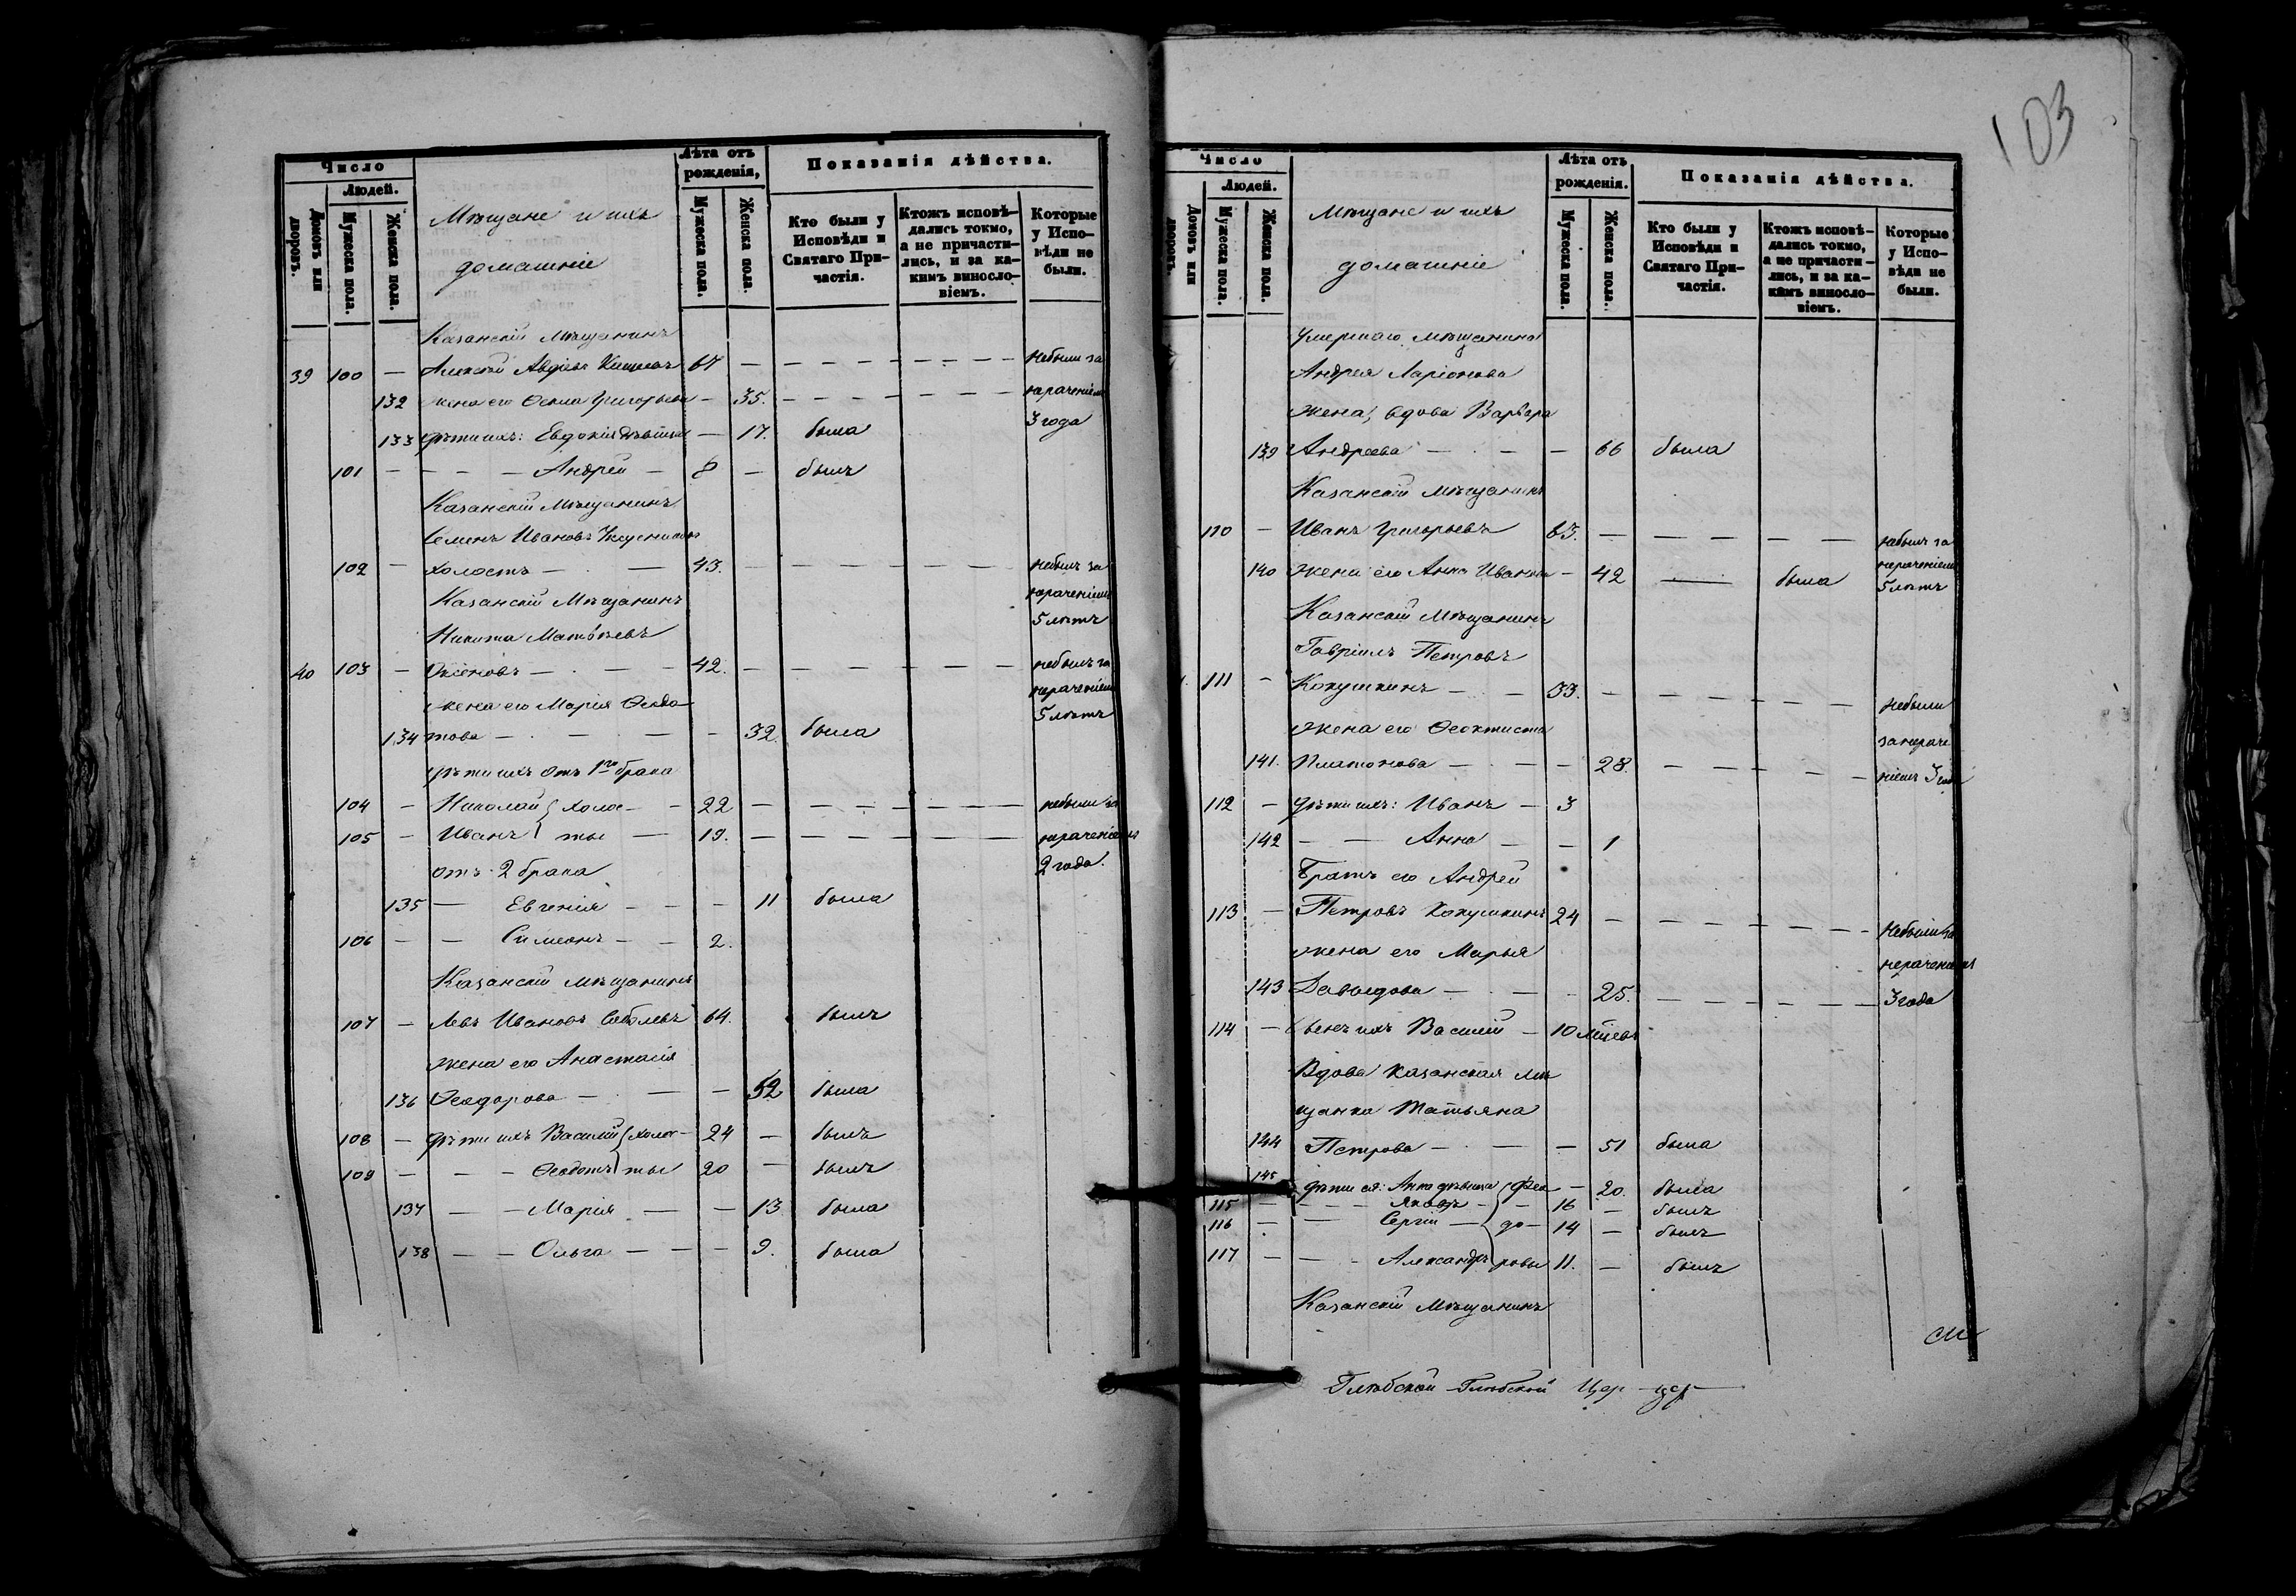 103
Число
Людей.
Домовъ или дворовъ.
Мужеска пола.
Женска пола.
Мѣщане и ихъ
домашніе
Лѣта отъ рожденія,
Мужеска пола.
Женска пола.
Показанія дѣйства.
Кто были у Исповѣди и Святаго Причастія.
Ктожъ исповѣдались токмо, а не причастились, и за какимъ винословіемъ.
Которые у Исповѣди не были.
Казанскій Мѣщанинъ
39 100 — Алексѣй 67 — — — — — — — небыли за
132 жена его Ѳекла Григорьева — 35. — — — — — — нерачені
133 дѣти ихъ: Евдокія дѣвица — 17. была 3 года
101 — — — — Андрей — 8 — былъ
Казанскій Мѣщанинъ
Семенъ Ивановъ
102 — холостъ — — 43. — — — — — — — небылъ за
Казанскій Мѣщанинъ нераченіемъ
Никита Матвѣевъ 5 лѣтъ
40 103 — Оксеновъ — — — 42. — — — — — — небылъ за
жена его Марія Ѳедо нераченіем
134 това — — — — 32. была 5 лѣтъ
дѣти ихъ отъ 1го брака
104 — Николай } холос — — 22 — — — — — — — небыли за
105 — Иванъ } ты — 19. — — — — — — — нераченіемъ
отъ 2 брака 2 года.
135 — Евгенія — — — 11 была
106 — — Симеонъ — — 2.
Казанскій мѣщанинъ
107 — Левъ Ивановъ Соболевъ 64. былъ
жена его Анастасія
136 Ѳеодорова — — — 52 была
108 — дѣти ихъ Василій } холос — 24 — былъ
109 — — — Ѳеодотъ } ты 20 — былъ
137 — — Марія — — 13 была
138 — — Ольга — — — 9. была
Число
Людей.
Домовъ или дворовъ.
Мужеска пола.
Женска пола.
Мѣщане и ихъ
домашніе
Лѣта отъ рожденія.
Мужеска пола.
Женска пола.
Показанія дѣйства.
Кто были у Исповѣди и Святаго Причастія.
Ктожъ исповѣдались токмо, а не причастились, и за какимъ винословіемъ.
Которые у Исповѣди не были.
Умершаго мѣщанина
Андрея Ларіонова
жена, вдова Варвара
139 Андреева — — — 66 была
Казанскій мѣщанинъ
110 — Иванъ Григорьевъ 63. — — — — — небылъ за
140 жена его Анна Иванова — 42 — была нераченіем
5 лѣтъ
Казанскій Мѣщанинъ
Гавріилъ Петровъ
111 — Кокушкинъ — — 33. — — — — — — небыли
жена его Ѳеоктиста занераче
141. Платонова — — — 28. — — — — — ніемъ 3 года
112 — дѣти ихъ: Иванъ — 3
142 — — Анна — — 1
Братъ его Андрей
113 — Петровъ Кокушкинъ 24 — — — — — — — Небыли за
жена его Марья нераченіемъ
143 Давыдова — — — 25. — — — — — — 3 года
114 — Сынъ ихъ Василій — 10 мѣсяц
Вдова казанская мѣ
щанка Татьяна
144 Петрова — — — 51 была
145 дѣти ея: Анна дѣвица } Ѳео — 20. была
115 — — — — Яковъ — } — 16 — былъ
116 — — Сергій — } до — 14 — былъ
117 — — — Александръ } ровы 11. — былъ
Казанскій Мѣщанинъ
См
Глѣбской Глѣбской Цер цер